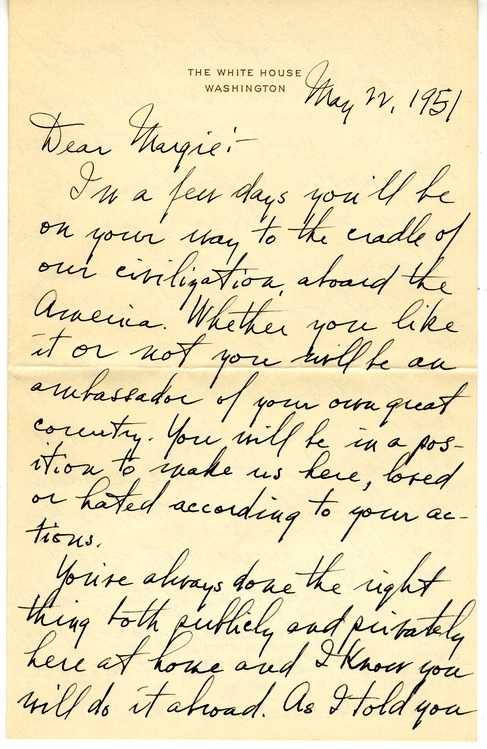 THE WHITE HOUSE
WASHINGTON
May 22, 1951
Dear Margie:-
In a few days you'll be
on your way to the cradle of
our civilization, aboard the
America. Whether you like
it or not you will be an
ambassador of your own great
country. You will be in a pos-
ition to make us here, loved
or hated according to your ac-
tions.
You've always done the right
thing both publicly and privately
here at home and I know you
will do it abroad. As I told you